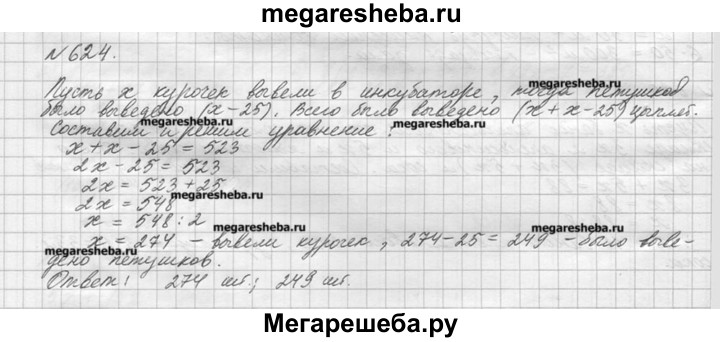 megaresheba.ru
N 624.
Пусть x курочек вывели в инкубаторе, тогда петушков
megaresheba.ru
было выведено (x-25). Всего было выведено (x+x-25) цыплят.
megaresheba.ru megaresheba.ru
Составим и решим уравнение:
x + x - 25 = 523
2x - 25 = 523
2x = 523 + 25
2x = 548
megaresheba.ru
x = 548 : 2
megaresheba.ru megaresheba.ru
x = 274 - вывели курочек, 274-25 = 249 - было выве-
megaresheba.ru
дено петушков.
Ответ: 274 шт.; 249 шт.
Мегарешеба.ру